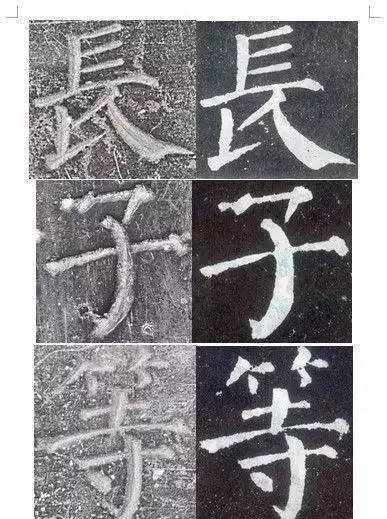 長長
子子
等等